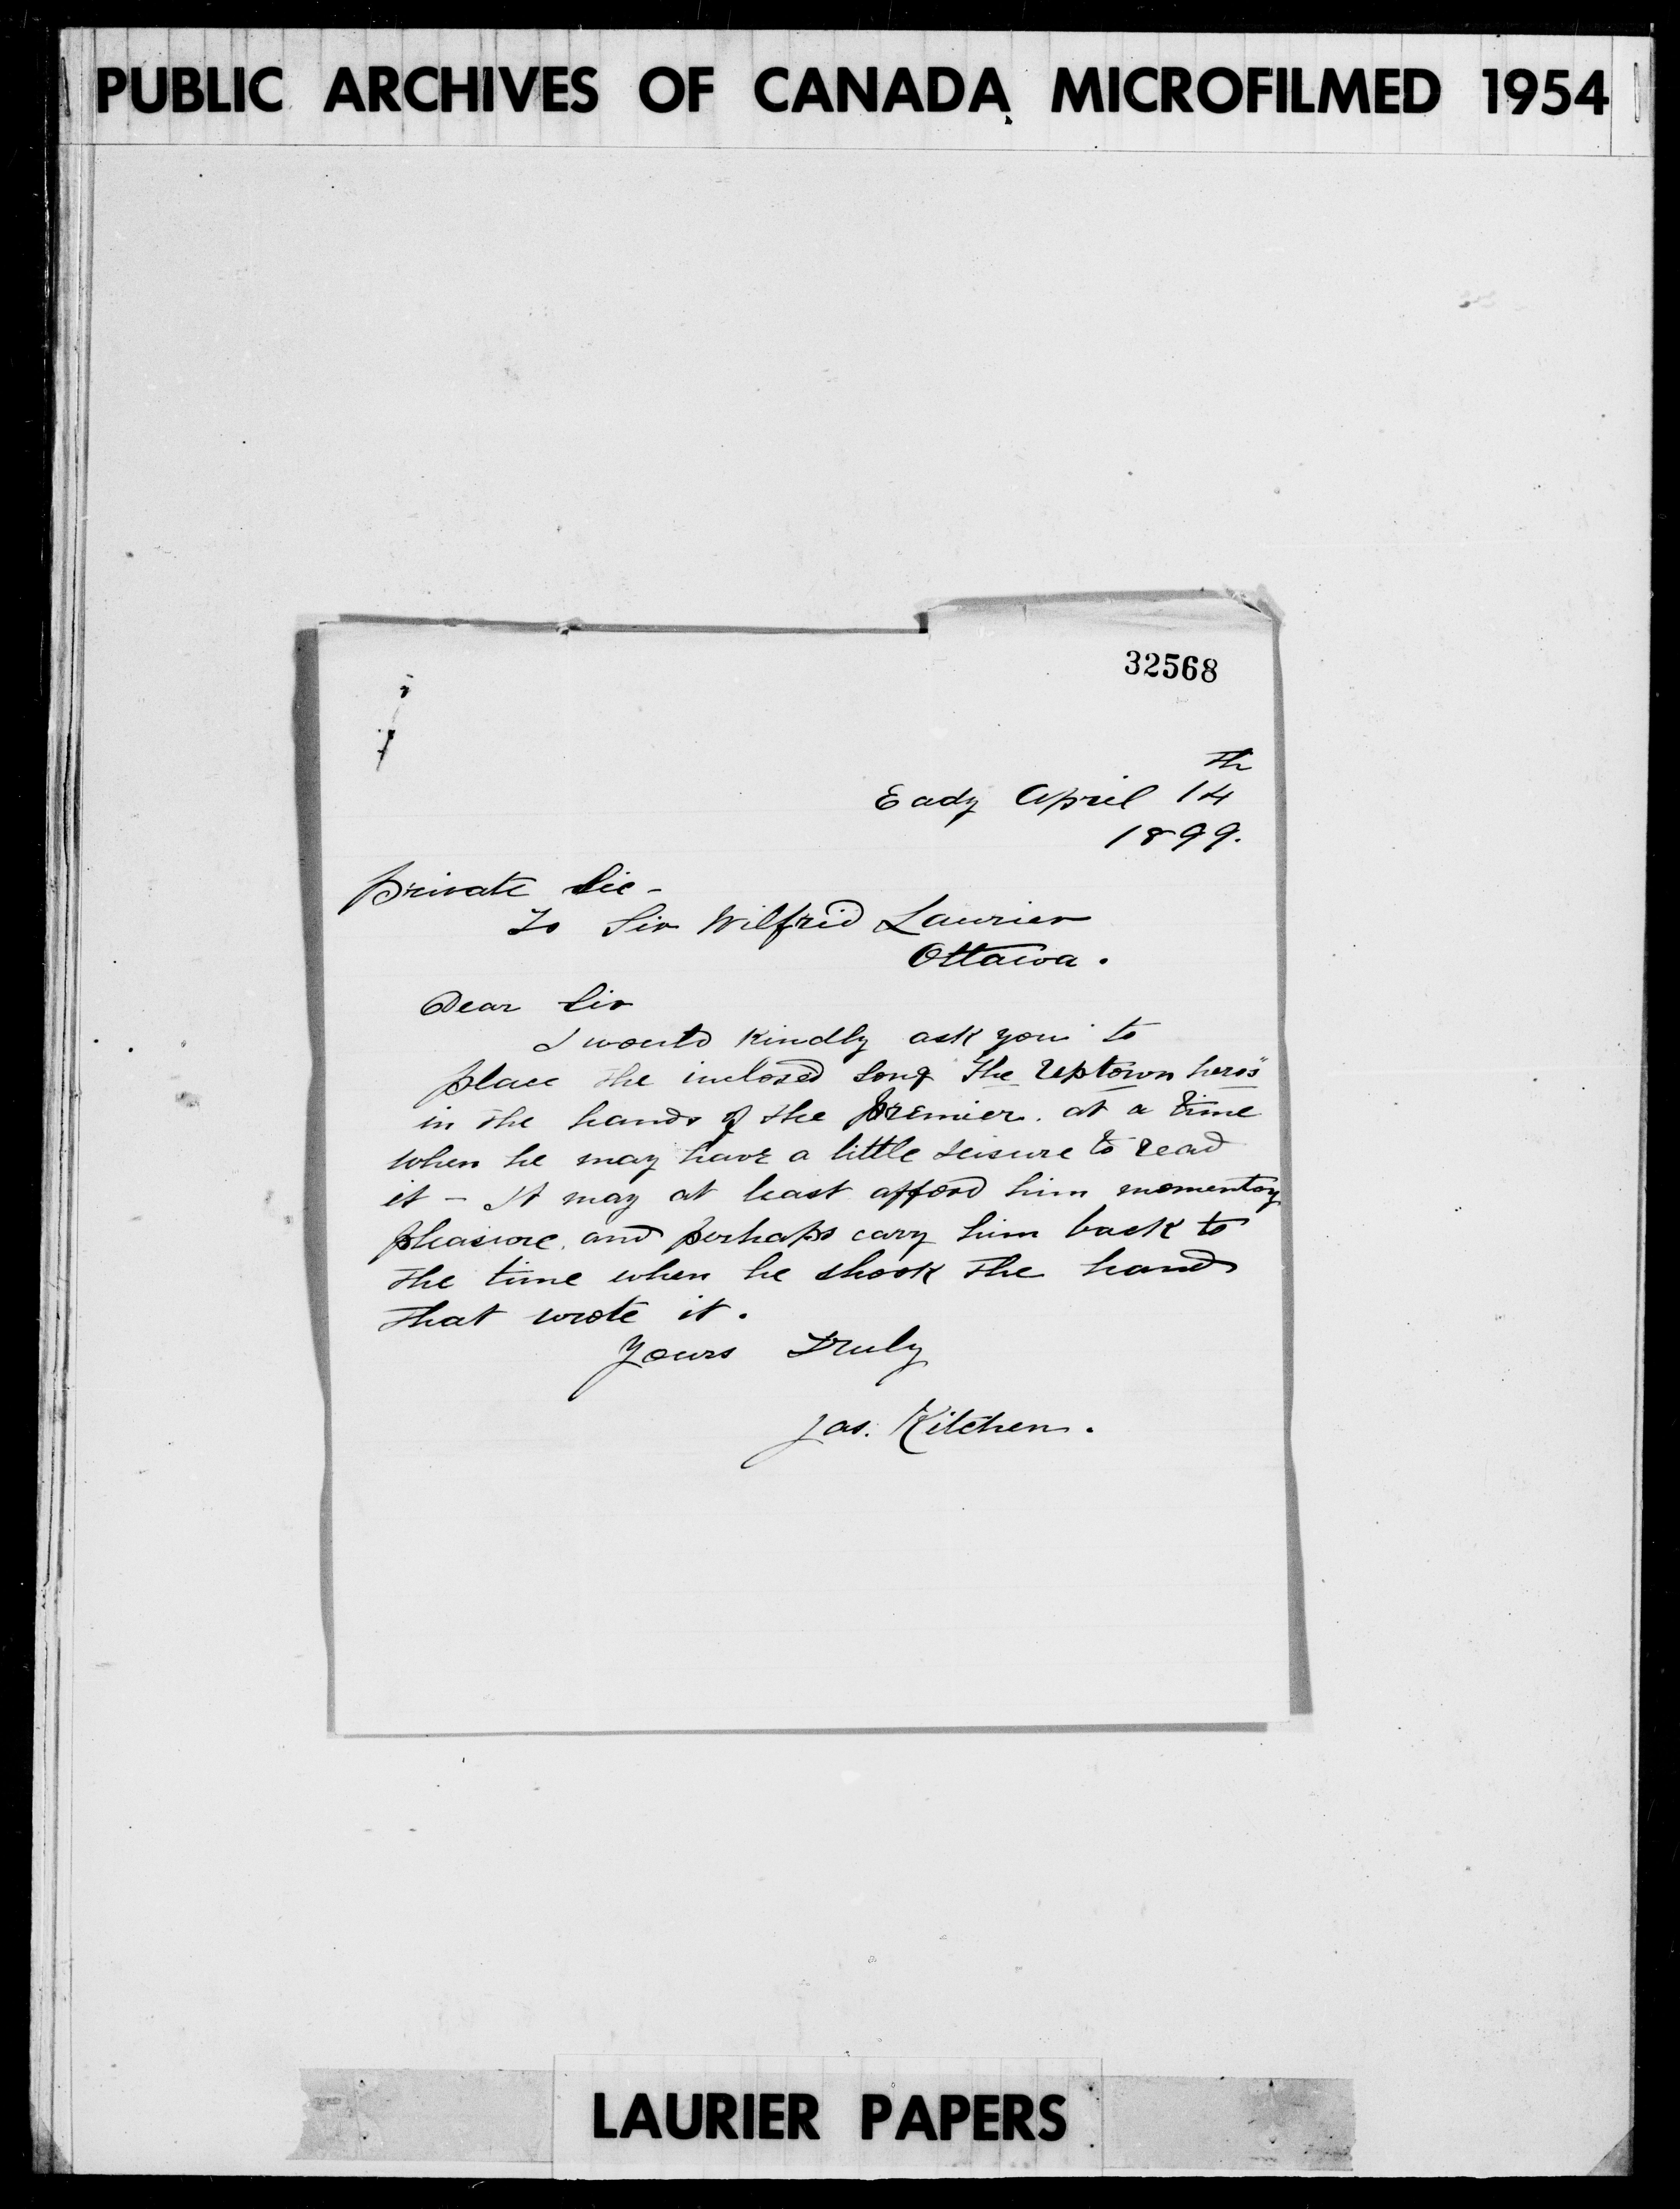 PUBLIC ARCHIVES OF CANADA MICROFILMED 1954
32568
Eady April 14th
1899.
Private Sec -
To Sir Wilfrid Laurier
Ottawa.
Dear Sir
I would kindly ask you to
place the inclosed song "The Uptown heros"
in the hands of the Premier. at a time
when he may have a little leisure to read
it - It may at least afford him momentary
pleasure. and perhaps cary him back to
the time when he shook the hand
that wrote it.
Yours Truly
Jas. Kitchen.
LAURIER PAPERS